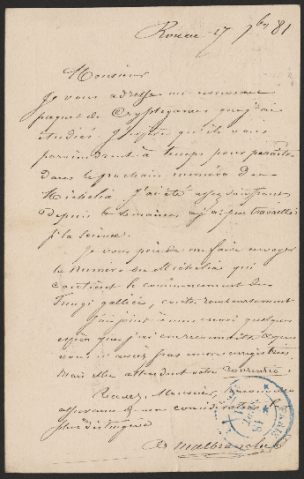 Rouen 17 7bre 81
Monsieur
Je vous adresse un nouveau
paquet de Cryptogames que j'ai
étudiés. J'espère qu'ils vous
parviendront à temps pour paraître
dans le prochain numéro de
Michelia. J'ai été assez souffrant
depuis
à la science.
Je vous prie de me faire envoyer
le numéro du Michelia qui
contient le commencement des
Fungi gallici, contre remboursement
J'ai joint à mon envoi quelques
espèces que j'ai
vous
mais elles attendent votre
Recevez, Monsieur,
assurance de ma considération la
plus distinguée
A. Malbranche
PARIS